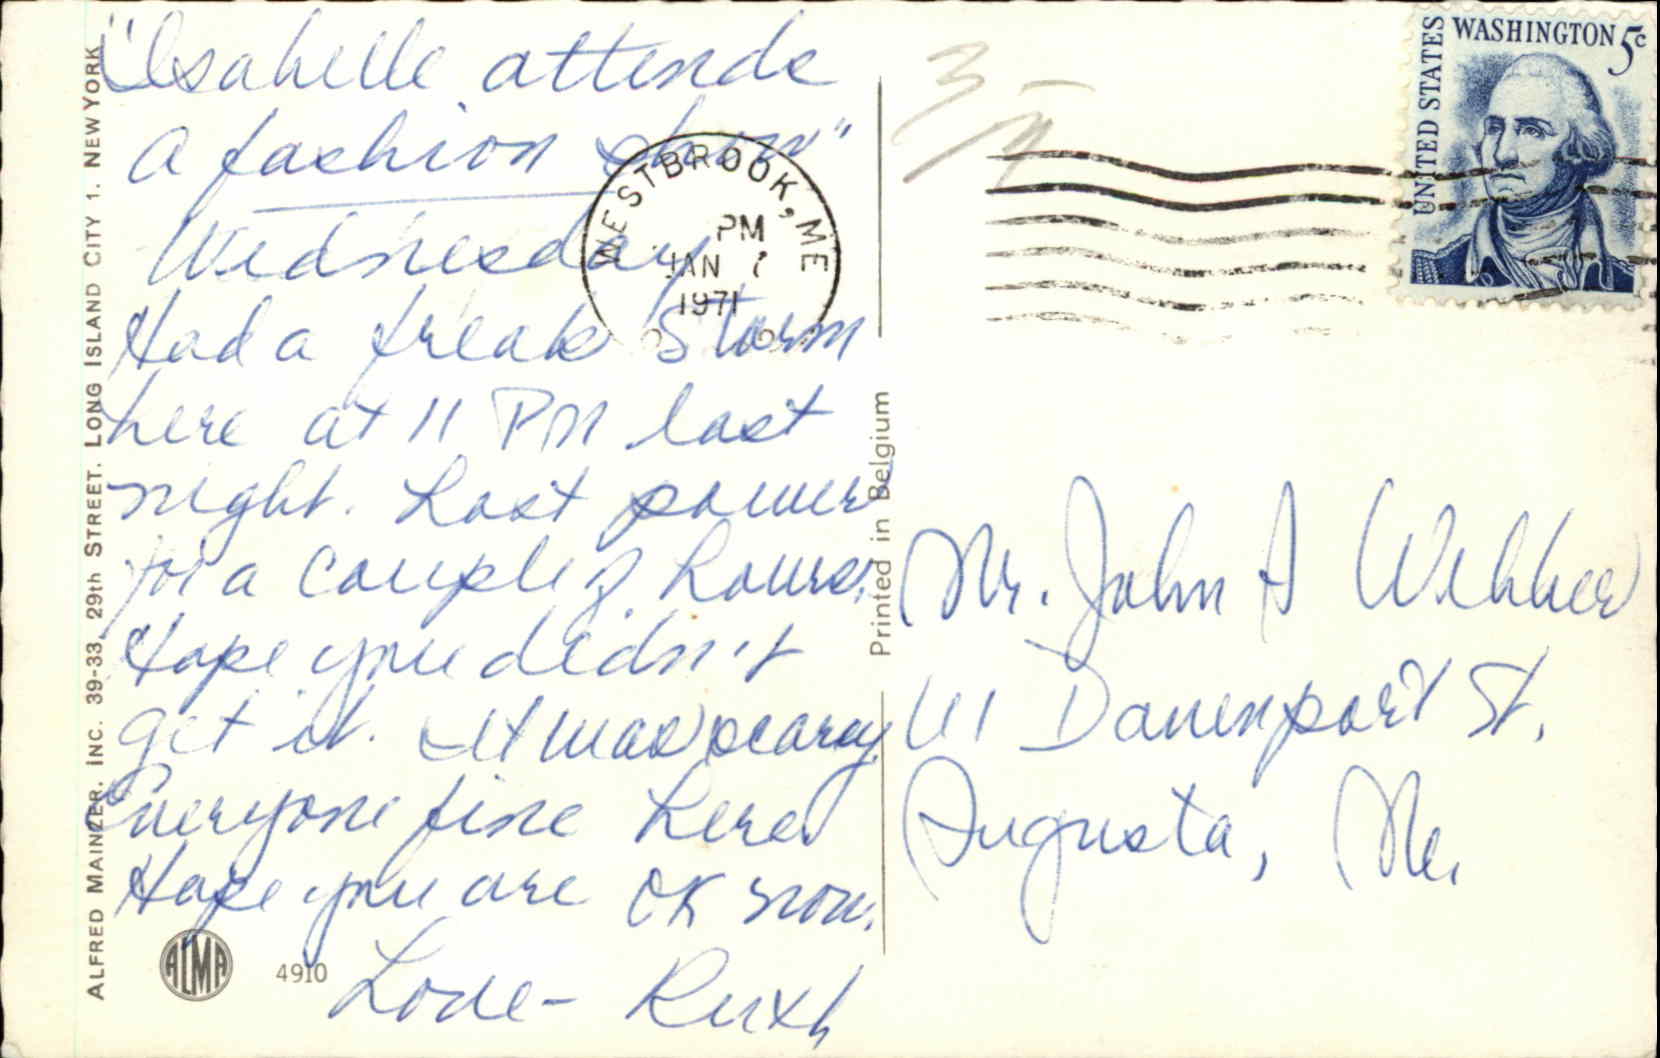 "Isabelle attends
a fashion show"
Wednesday
Had a freak storm
here at 11 PM last
night. Lost power
for a couple of hours.
Hope you didn't
get it. It was scary.
Everyone fine here.
Hope you are OK now.
Love - Ruth
ALFRED MAINZER, INC. 39-33, 29th STREET. LONG ISLAND CITY 1. NEW YORK
ALMA
4910
Printed in Belgium
WESTBROOK, ME
PM
JAN 7
1971
3-
UNITED STATES
WASHINGTON 5c
Mr. John A Webber
111 Davenport St.
Augusta, Me.